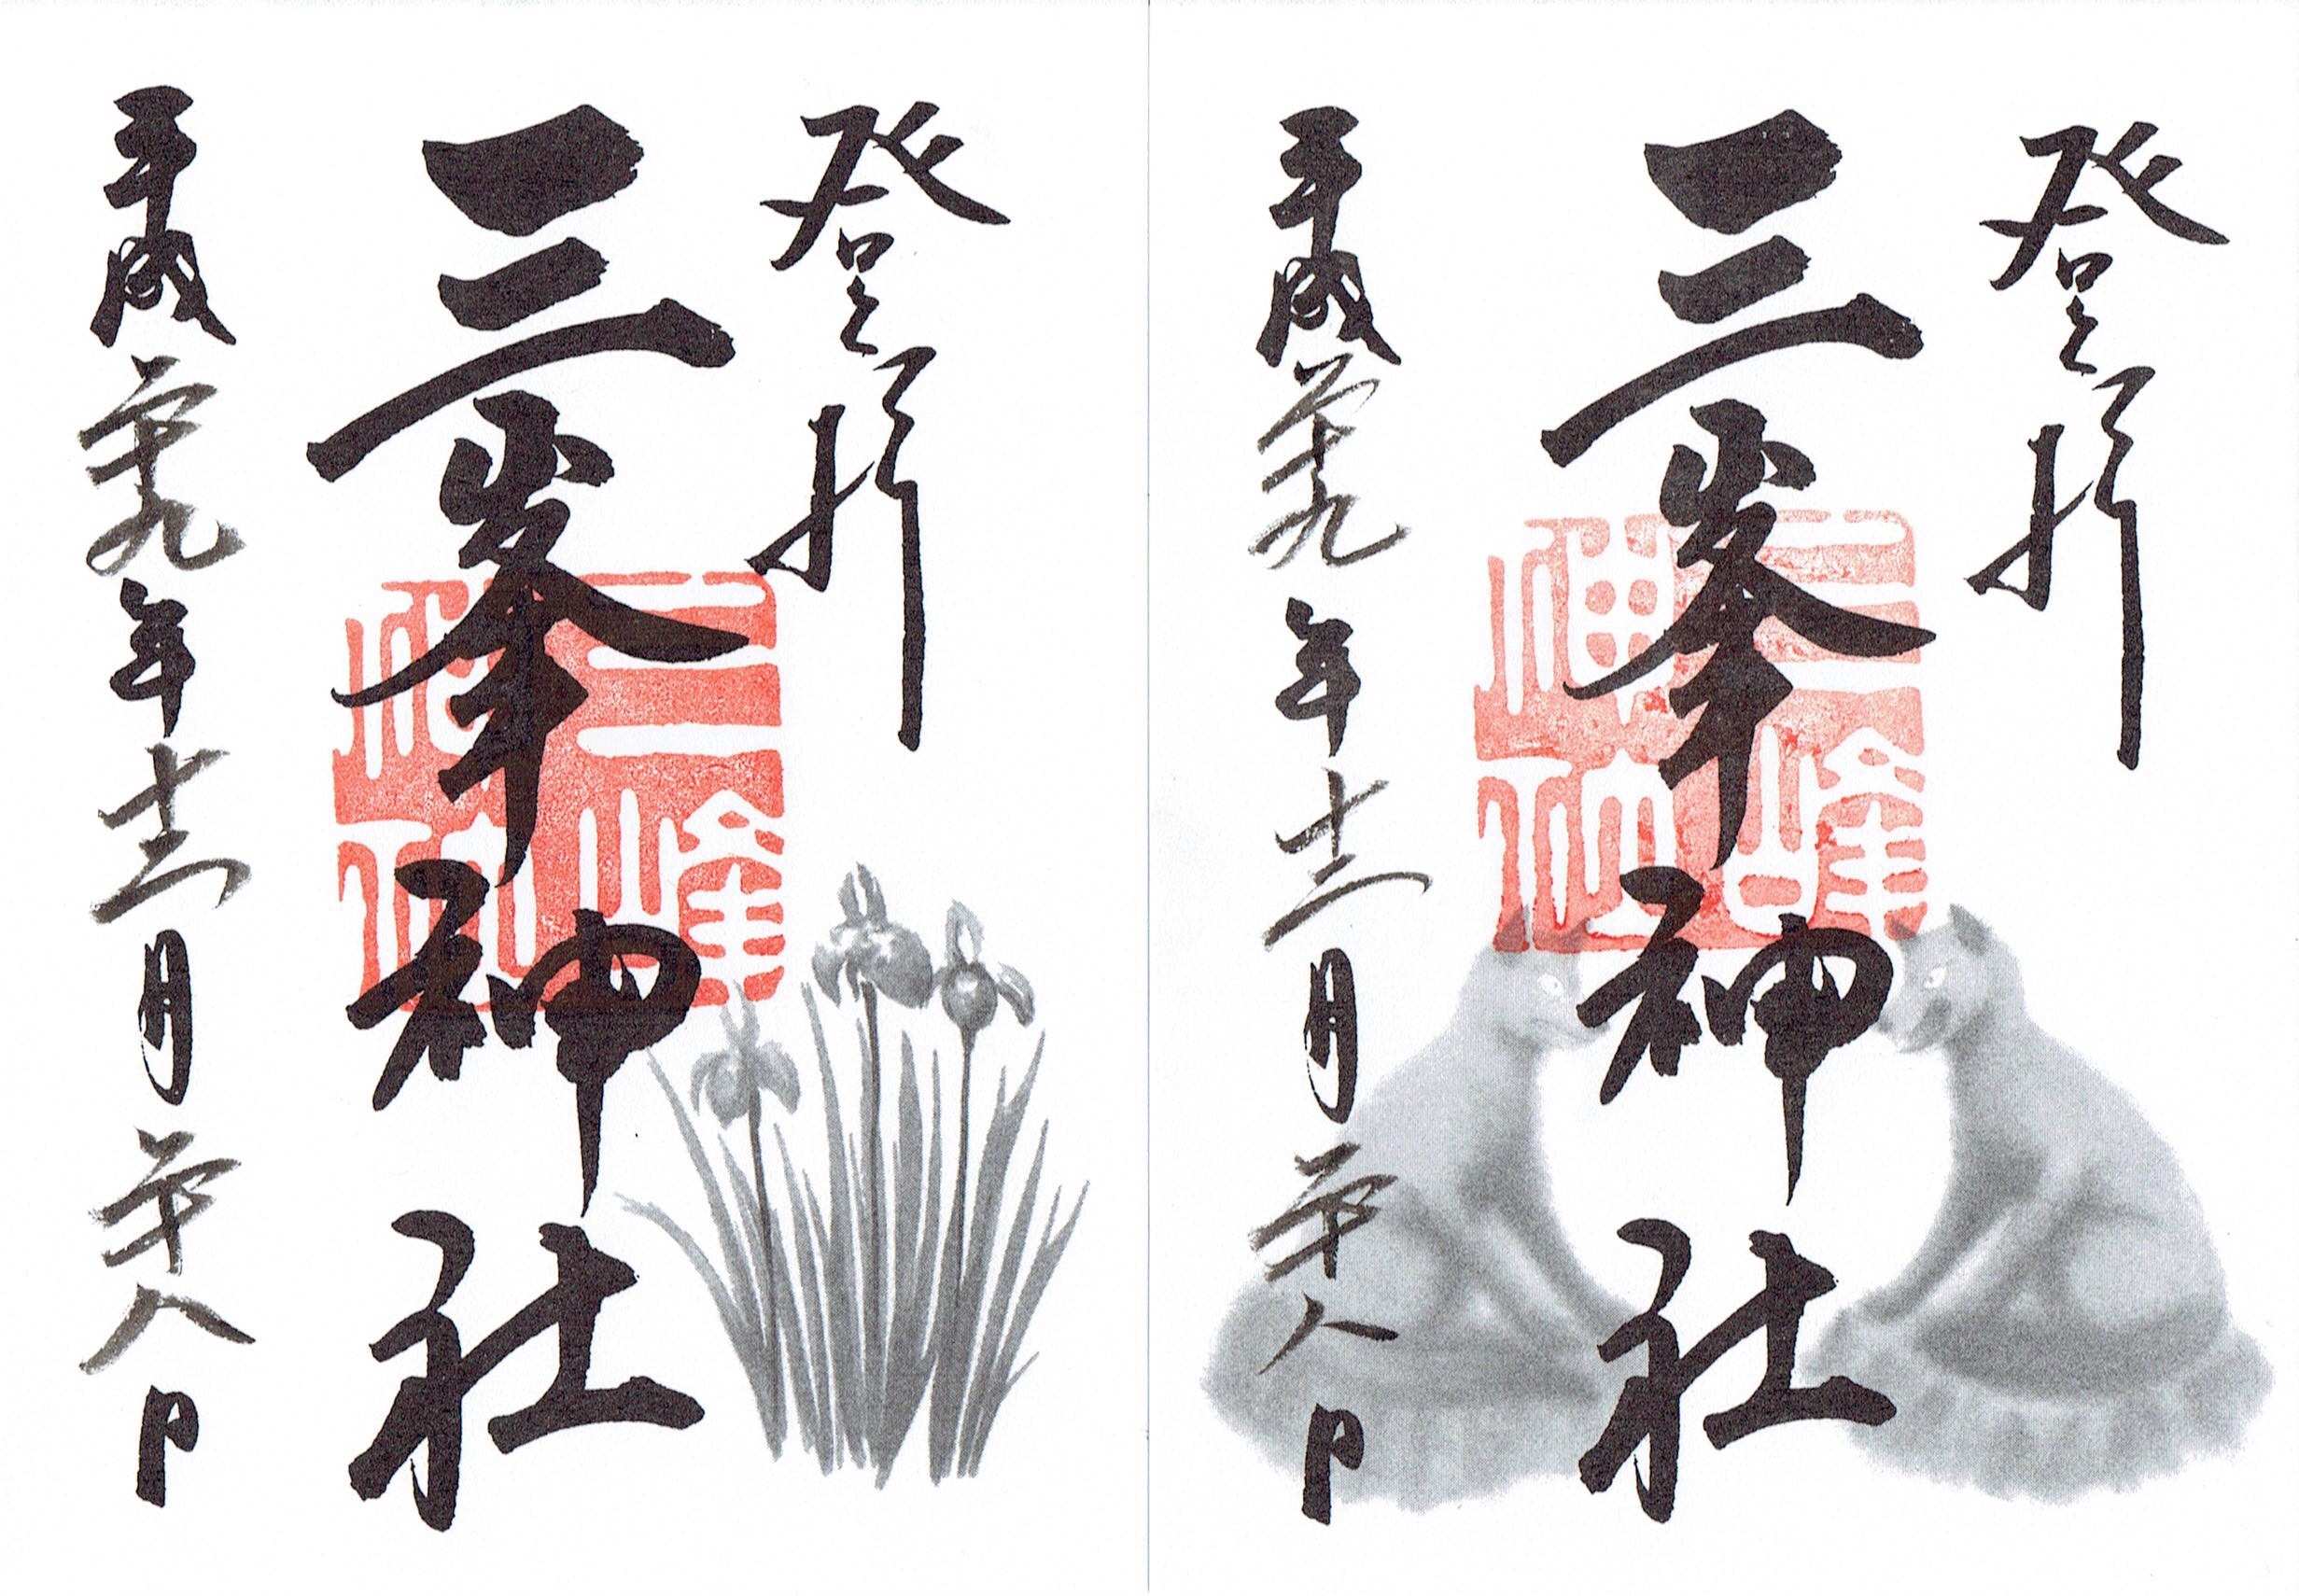 登拝
三峯神社
三峰神社
平成二十九年十二月二十八日
登拝
三峯神社
三峰神社
平成二十九年十二月二十八日